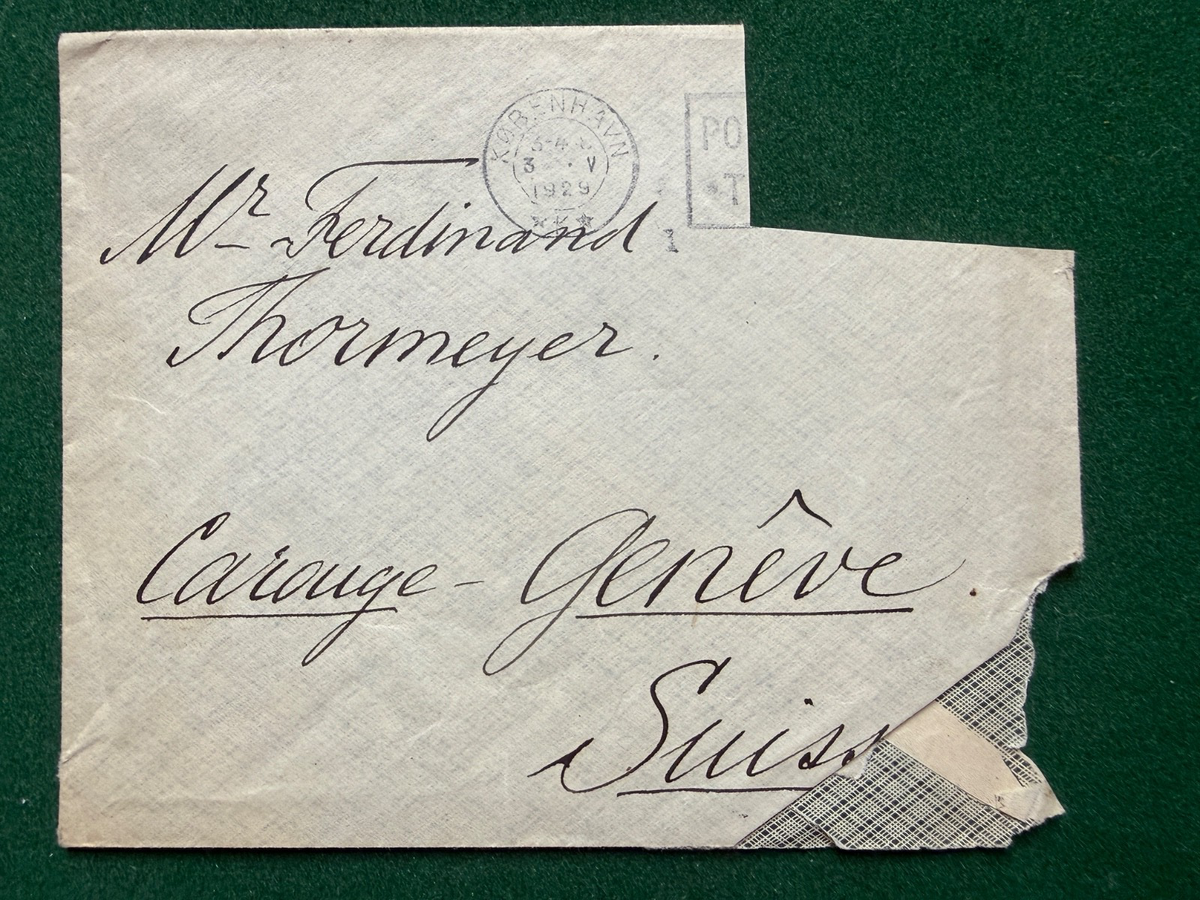 KØBENHAVN
3-4
3 V
1929
PO
T
1
Mr Ferdinand
Thormeyer.
Carouge - Genêve
Suiss